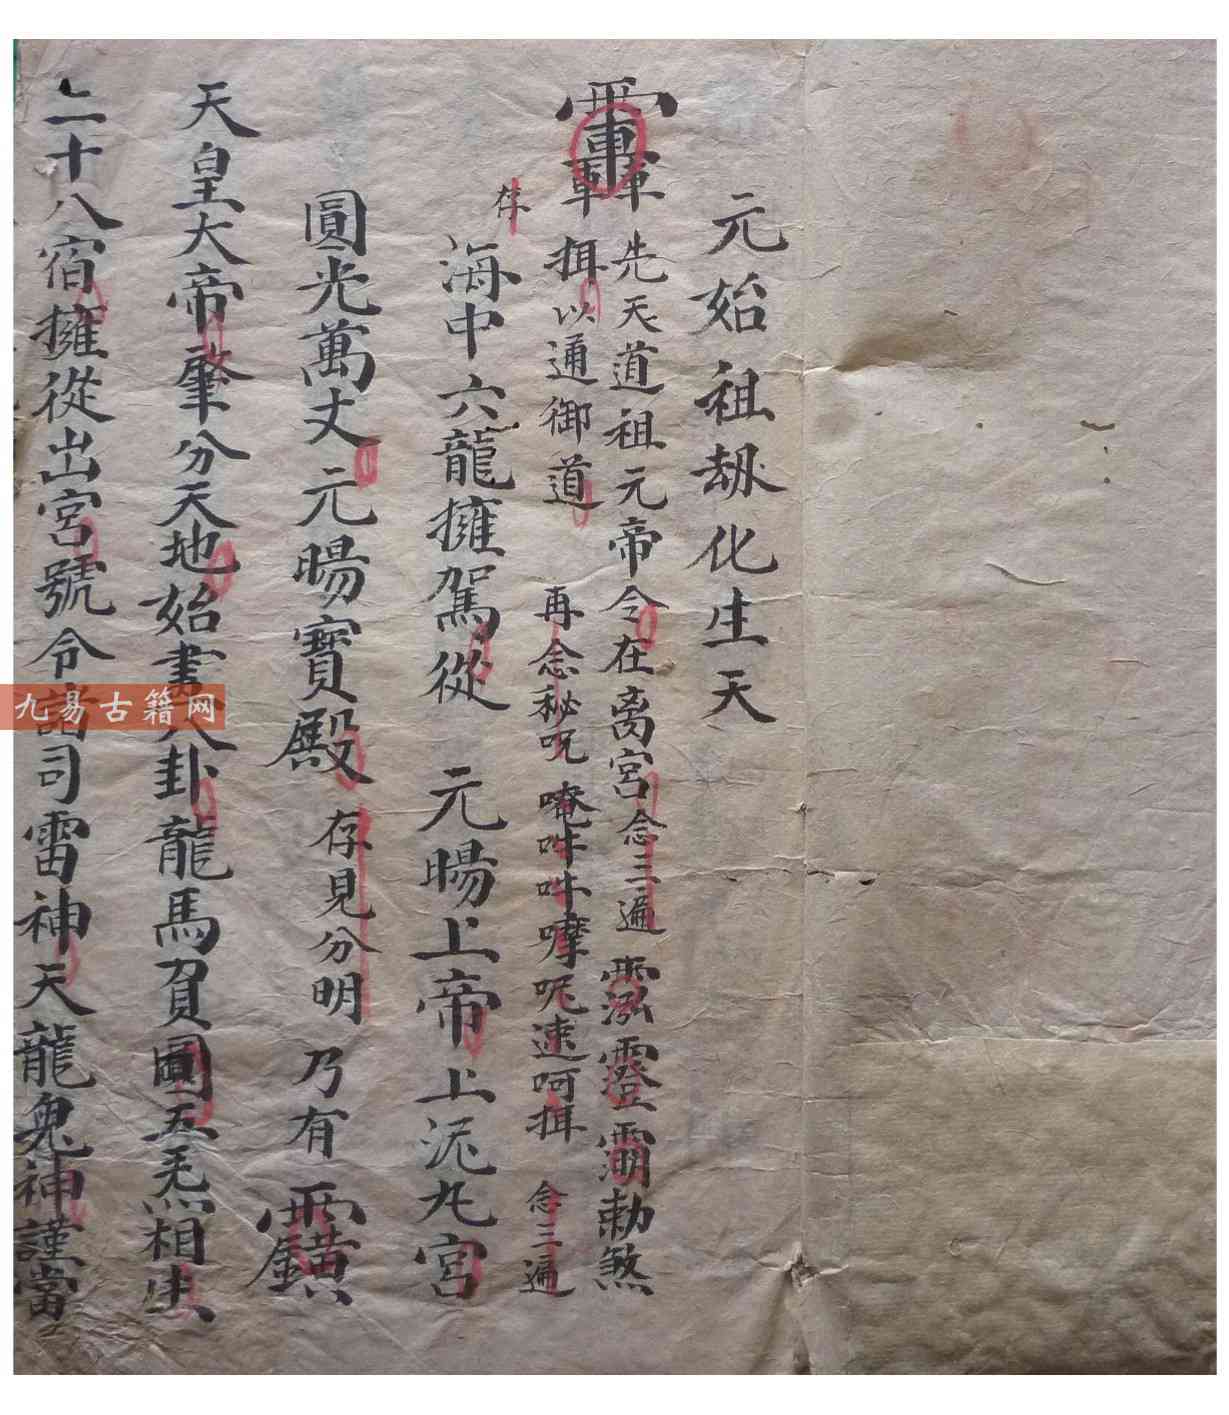 元始祖劫化生天
先天道祖元帝令在离宮念三遍 澪 勅煞
揖以通御道 再念秘呪 唵吽吽嚤呢速呵揖 念三遍
存
海中六龍擁駕從 元暘上帝上泥丸宮
圓光萬丈元暘寶殿 存見分明 乃有
天皇大帝肇分天地始畫八卦龍馬負圖五炁相生
二十八宿擁從出宮號令諸司雷神天龍鬼神謹當
九易古籍网